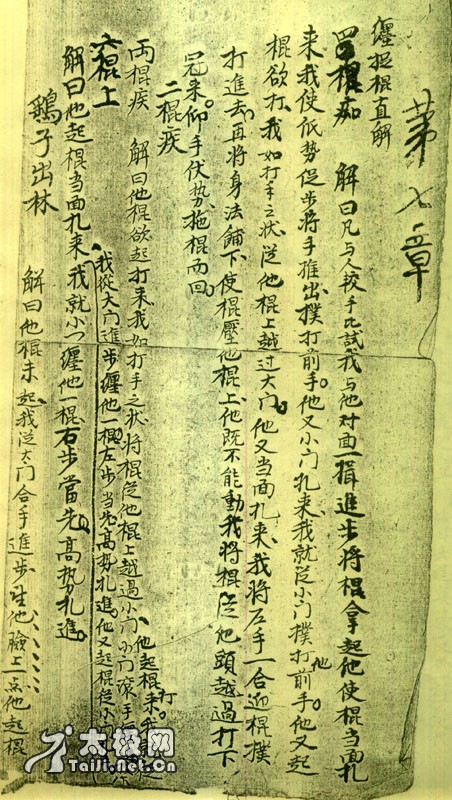 第七章
缠捉棍直解
四棍痴 解曰凡与人较手比试我与他对面一揖進步将棍拿起他使棍当面扎
来我使低势促步将手推出撲打前手他又小门扎来我就泛小门撲打他前手他又起
棍欲打我如打手之状泛他棍上越过大门他又当面扎来我将左手一合迎棍撲
打進去再将身法鋪下使棍壓他棍上他既不能動我将棍泛他頭越過打下
冠来仰手伏势拖棍而回
二棍疾
兩棍疾 解曰他棍欲起打来我如打手之状将棍泛他棍上越過小门小门滚手
他起棍来打我
我從大门進步缠他一棍左步当先高势扎進他又起棍從小
六棍上
解曰他起棍当面扎来我就小门缠他一棍右步當先高势扎進
鷄子出林
解曰他棍未起我泛大门合手進步 他臉上一点他起棍
太极网
Taiji.Net.Cn